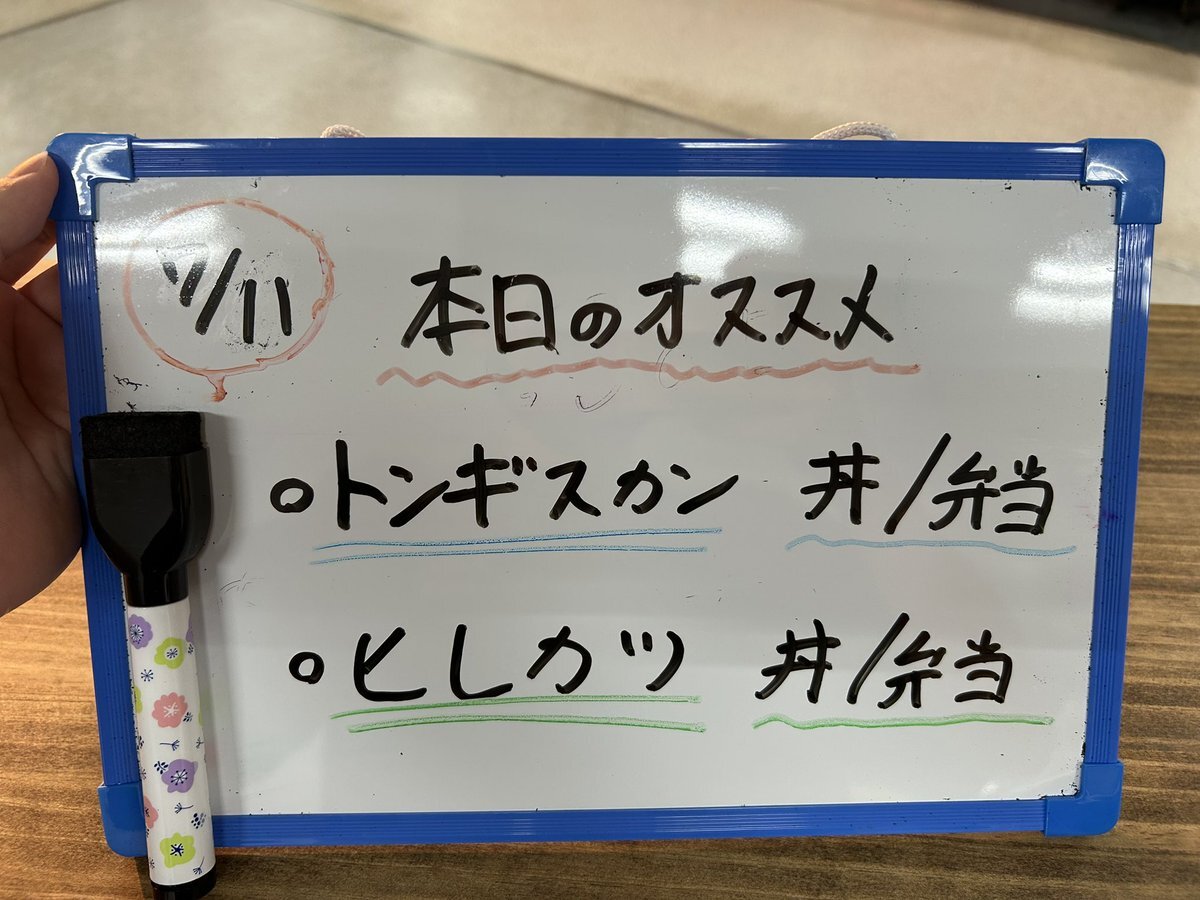 7/11
本日のオススメ
○トンギスカン 丼/弁当
○ヒレカツ 丼/弁当